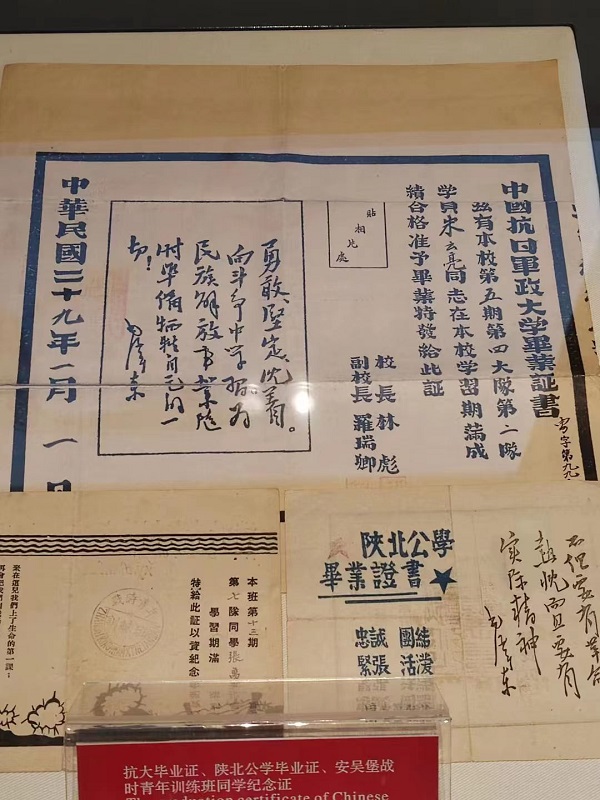 中國抗日軍政大学畢業証書
寄字第九九
茲有本校第五期第四大隊第二隊
学員宋云亮同志在本校学習期滿成
績合格准予畢業特發給此証
校長林彪
副校長羅瑞卿
貼相片處
勇敢、堅定、沉着。
向斗争中学習為
民族解放事業隨
時準備犧牲自己的一
切！
毛澤東
中華民國二十九年一月一日
本班第十三期
第七隊同學張
學習期滿
特給此証以資紀念
來在這兒我們上了生命的第一課；
陝北公學
畢業證書
忠誠團結
緊張活潑
不但要有革命
熱忱而且要有
实际精神
毛澤东
抗大毕业证、陕北公学毕业证、安吴堡战
时青年训练班同学纪念证
The graduation certificate of Chinese